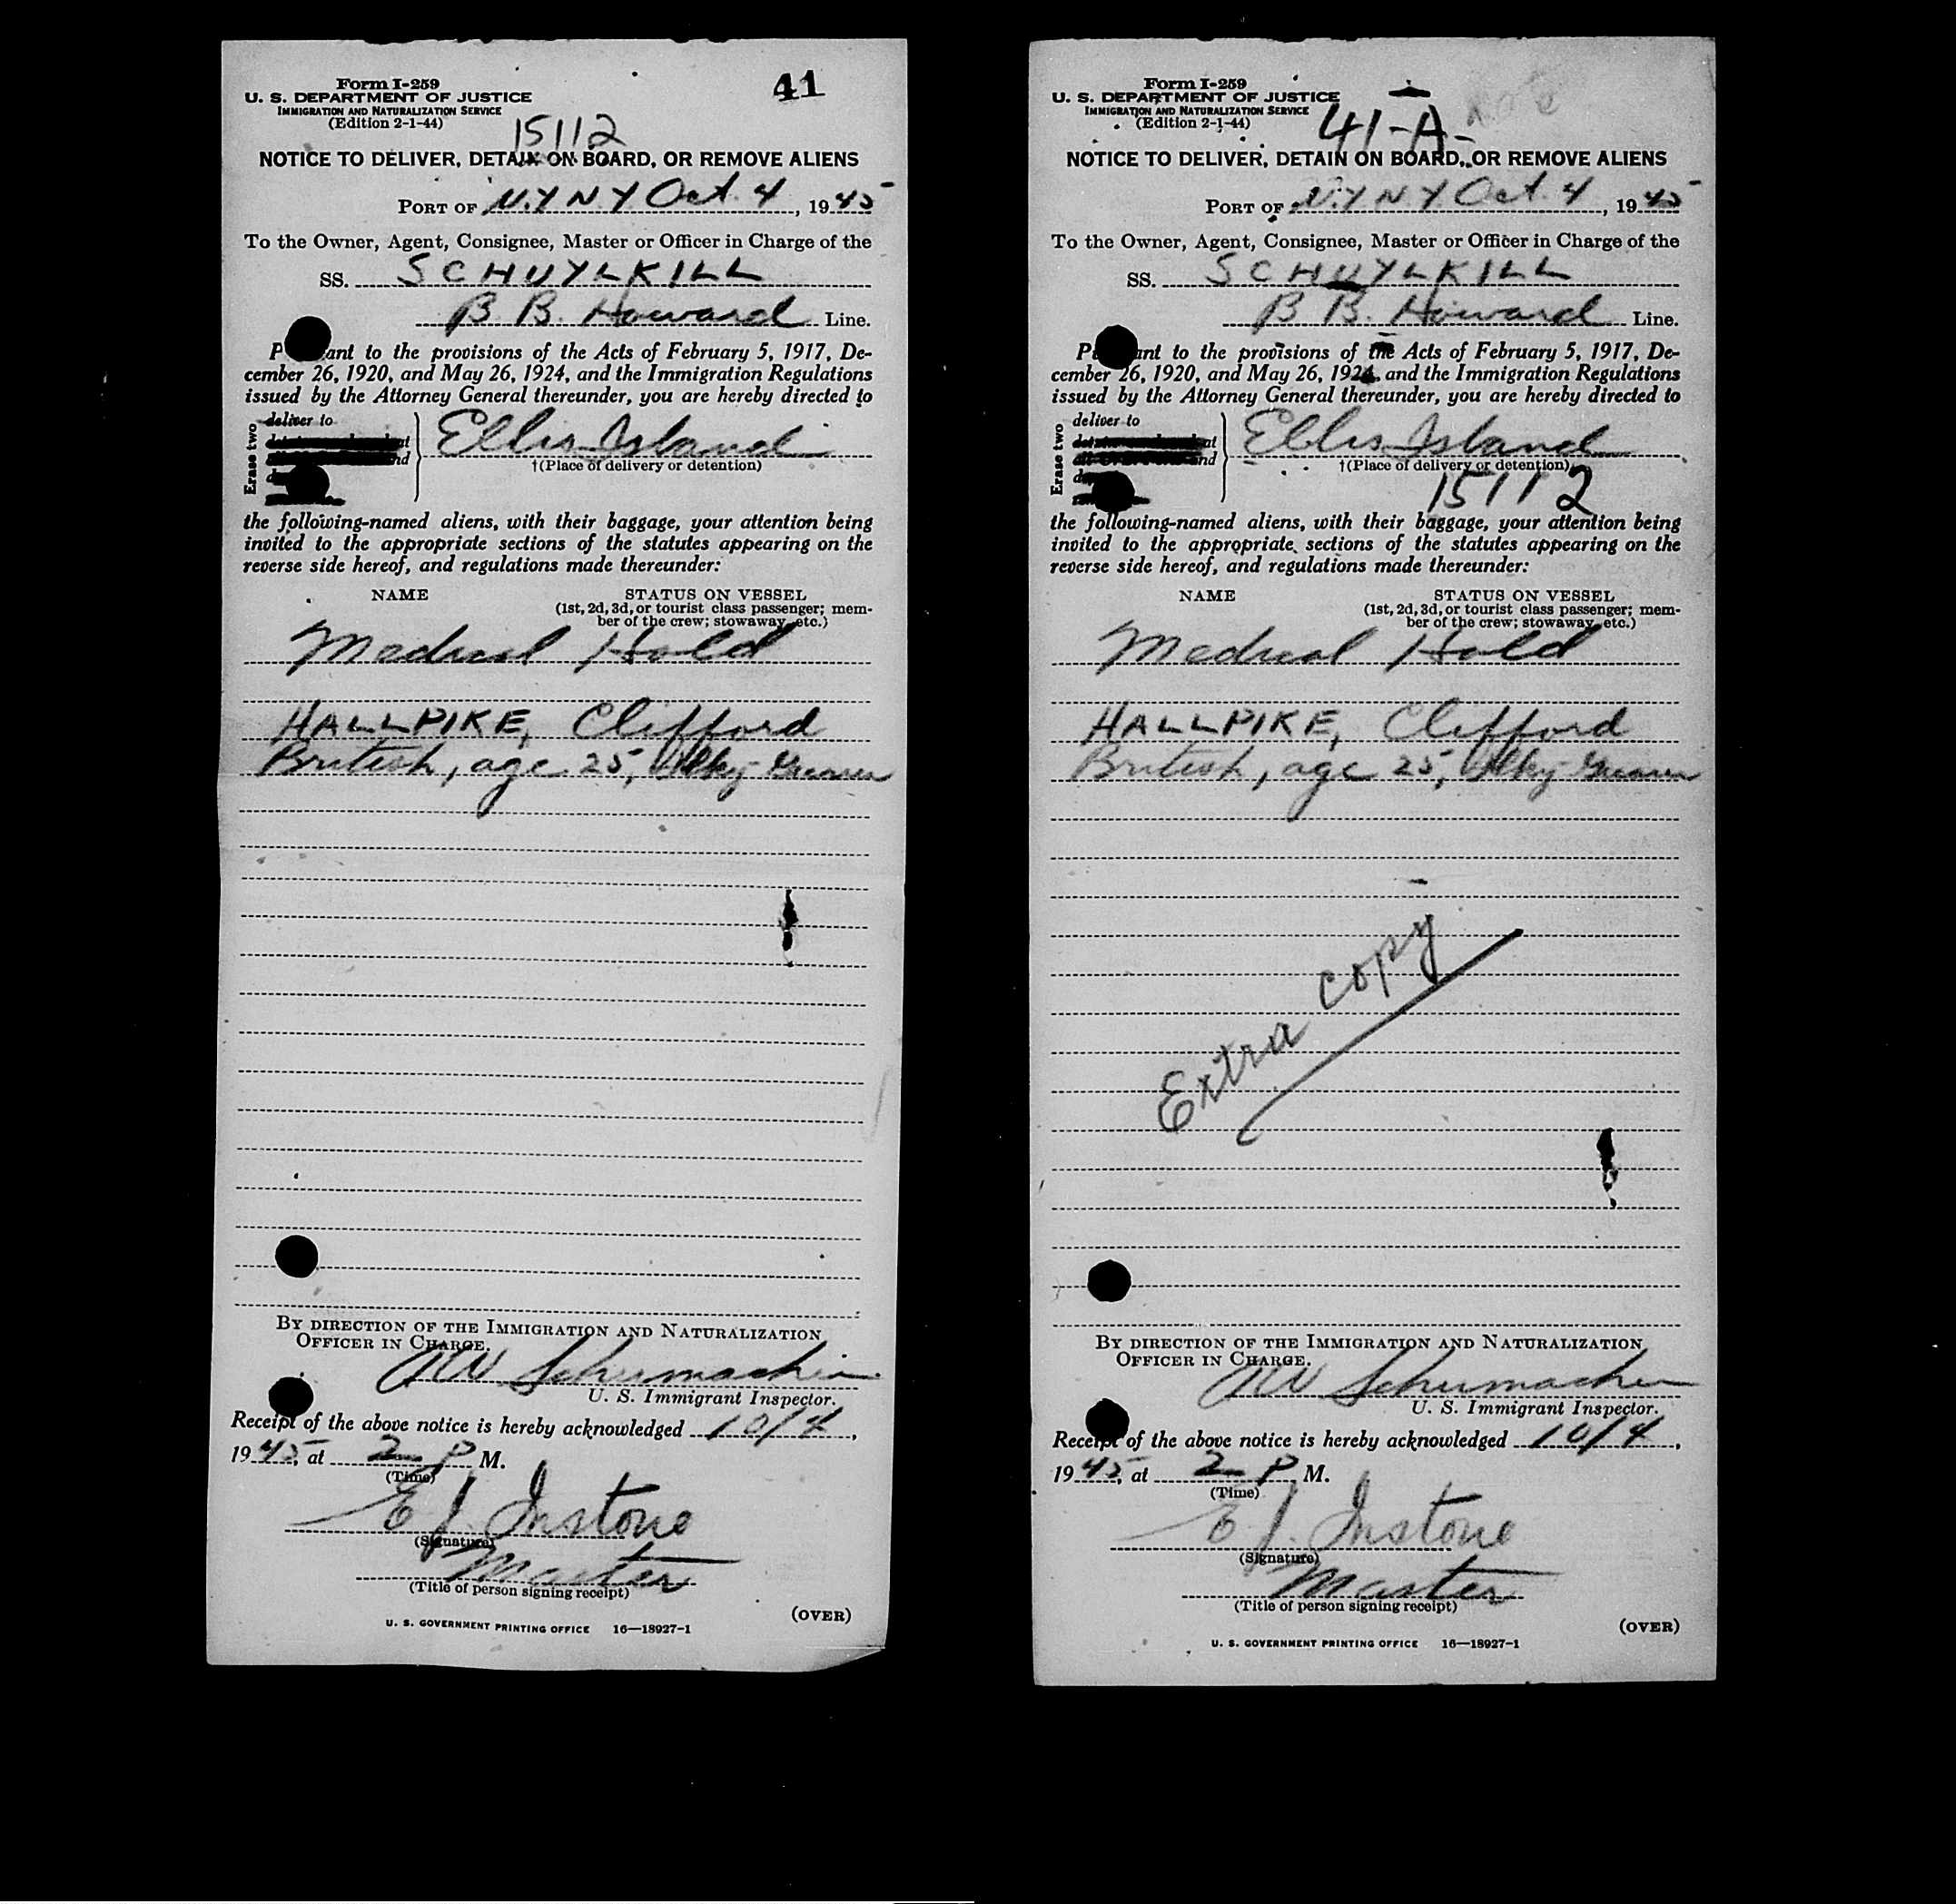 Form I-259
U. S. DEPARTMENT OF JUSTICE
IMMIGRATION AND NATURALIZATION SERVICE
(Edition 2-1-44)
41
15112
NOTICE TO DELIVER, DETAIN ON BOARD, OR REMOVE ALIENS
PORT OF N.Y N.Y Oct. 4, 1945
To the Owner, Agent, Consignee, Master or Officer in Charge of the
SS. SCHUYLKILL
B. B. Howard Line.
P ant to the provisions of the Acts of February 5, 1917, De-
cember 26, 1920, and May 26, 1924, and the Immigration Regulations
issued by the Attorney General thereunder, you are hereby directed to
Erase two
deliver to
Ellis Island
†(Place of delivery or detention)
the following-named aliens, with their baggage, your attention being
invited to the appropriate sections of the statutes appearing on the
reverse side hereof, and regulations made thereunder:
NAME STATUS ON VESSEL
(1st, 2d, 3d, or tourist class passenger; mem-
ber of the crew; stowaway, etc.)
Medical Hold
HALLPIKE, Clifford
British, age 25,
BY DIRECTION OF THE IMMIGRATION AND NATURALIZATION
OFFICER IN CHARGE.
Schumacher
U. S. Immigrant Inspector.
Receipt of the above notice is hereby acknowledged 10/4,
1945, at 2 P M.
(Time)
E J. Instone
(Signature)
Master
(Title of person signing receipt)
(OVER)
U. S. GOVERNMENT PRINTING OFFICE 16—18927-1
Form I-259
U. S. DEPARTMENT OF JUSTICE
IMMIGRATION AND NATURALIZATION SERVICE
(Edition 2-1-44)
41-A-
NOTICE TO DELIVER, DETAIN ON BOARD, OR REMOVE ALIENS
PORT OF N.Y N.Y Oct. 4, 1945
To the Owner, Agent, Consignee, Master or Officer in Charge of the
SS. SCHUYLKILL
B. B. Howard Line.
P ant to the provisions of the Acts of February 5, 1917, De-
cember 26, 1920, and May 26, 1924, and the Immigration Regulations
issued by the Attorney General thereunder, you are hereby directed to
Erase two
deliver to
Ellis Island
†(Place of delivery or detention)
15112
the following-named aliens, with their baggage, your attention being
invited to the appropriate sections of the statutes appearing on the
reverse side hereof, and regulations made thereunder:
NAME STATUS ON VESSEL
(1st, 2d, 3d, or tourist class passenger; mem-
ber of the crew; stowaway, etc.)
Medical Hold
HALLPIKE, Clifford
British, age 25,
Extra copy
BY DIRECTION OF THE IMMIGRATION AND NATURALIZATION
OFFICER IN CHARGE.
Schumacher
U. S. Immigrant Inspector.
Receipt of the above notice is hereby acknowledged 10/4,
1945, at 2 P M.
(Time)
E. J. Instone
(Signature)
Master
(Title of person signing receipt)
(OVER)
U. S. GOVERNMENT PRINTING OFFICE 16—18927-1